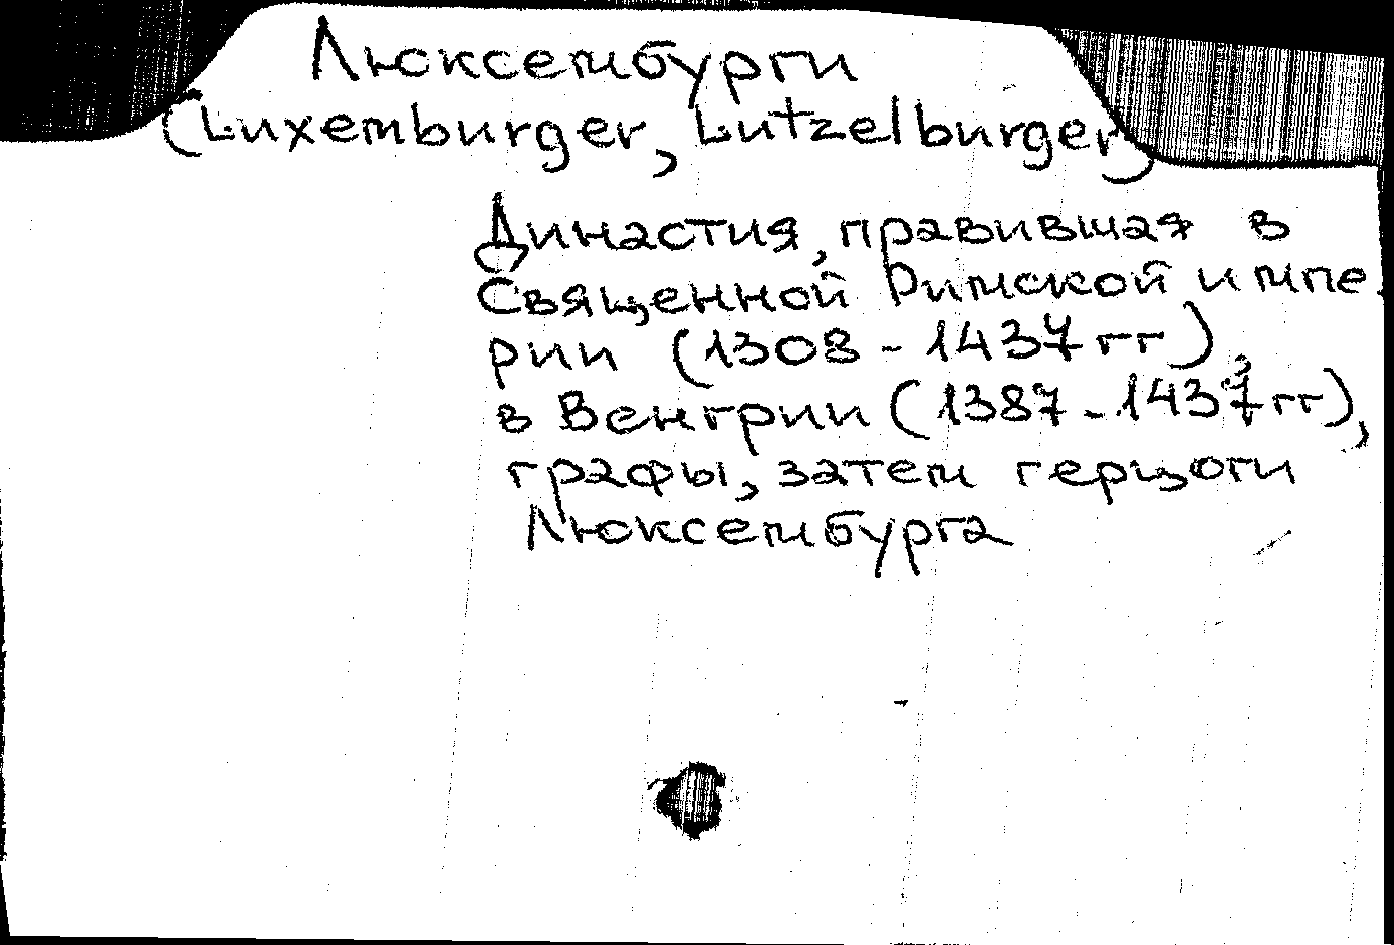 Люксембурги
(Luxemburger, Lutzelburger)
Династия, правившая в
Священной Римской импе
рии (1308 - 1437 гг),
в Венгрии (1387 - 1437 гг),
графы, затем герцоги
Люксембурга